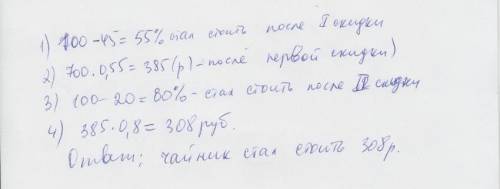 1) 100-45= 55% стал стоить после I скидки
2) 700·0,55= 385(р)-после первой скидки)
3) 100-20=80%- стал стоить после II скидки
4) 385·0,8= 308 руб.
Ответ; чайник стал стоить 308р.